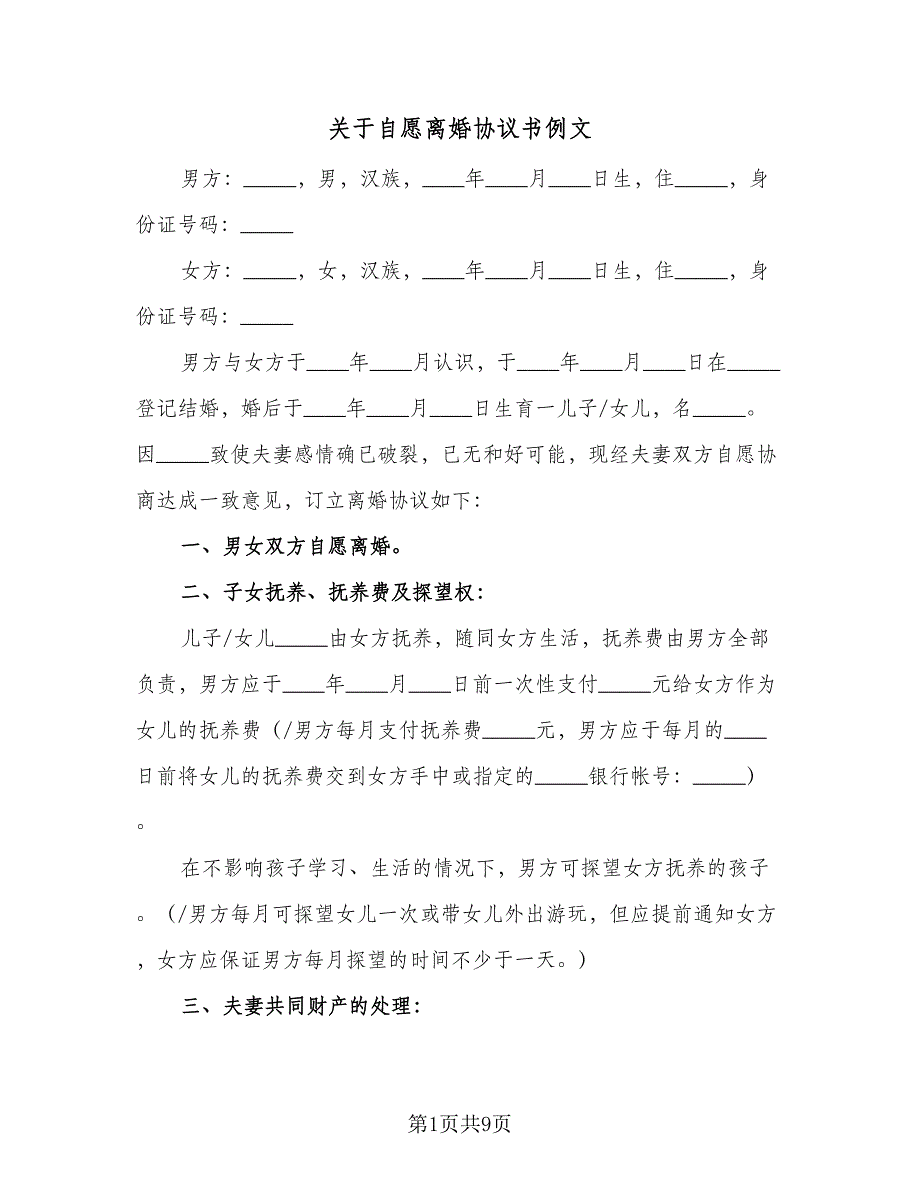 关于自愿离婚协议书例文
男方：_____，男，汉族，____年____月____日生，住_____，身
份证号码：_____
女方：_____，女，汉族，____年____月____日生，住_____，身
份证号码：_____
男方与女方于____年____月认识，于____年____月____日在_____
登记结婚，婚后于____年____月____日生育一儿子/女儿，名_____。
因_____致使夫妻感情确已破裂，已无和好可能，现经夫妻双方自愿协
商达成一致意见，订立离婚协议如下：
一、男女双方自愿离婚。
二、子女抚养、抚养费及探望权：
儿子/女儿_____由女方抚养，随同女方生活，抚养费由男方全部
负责，男方应于____年____月____日前一次性支付_____元给女方作为
女儿的抚养费（/男方每月支付抚养费_____元，男方应于每月的____
日前将女儿的抚养费交到女方手中或指定的_____银行帐号：_____）
。
在不影响孩子学习、生活的情况下，男方可探望女方抚养的孩子
。（/男方每月可探望女儿一次或带女儿外出游玩，但应提前通知女方
，女方应保证男方每月探望的时间不少于一天。）
三、夫妻共同财产的处理：
第1页共9页